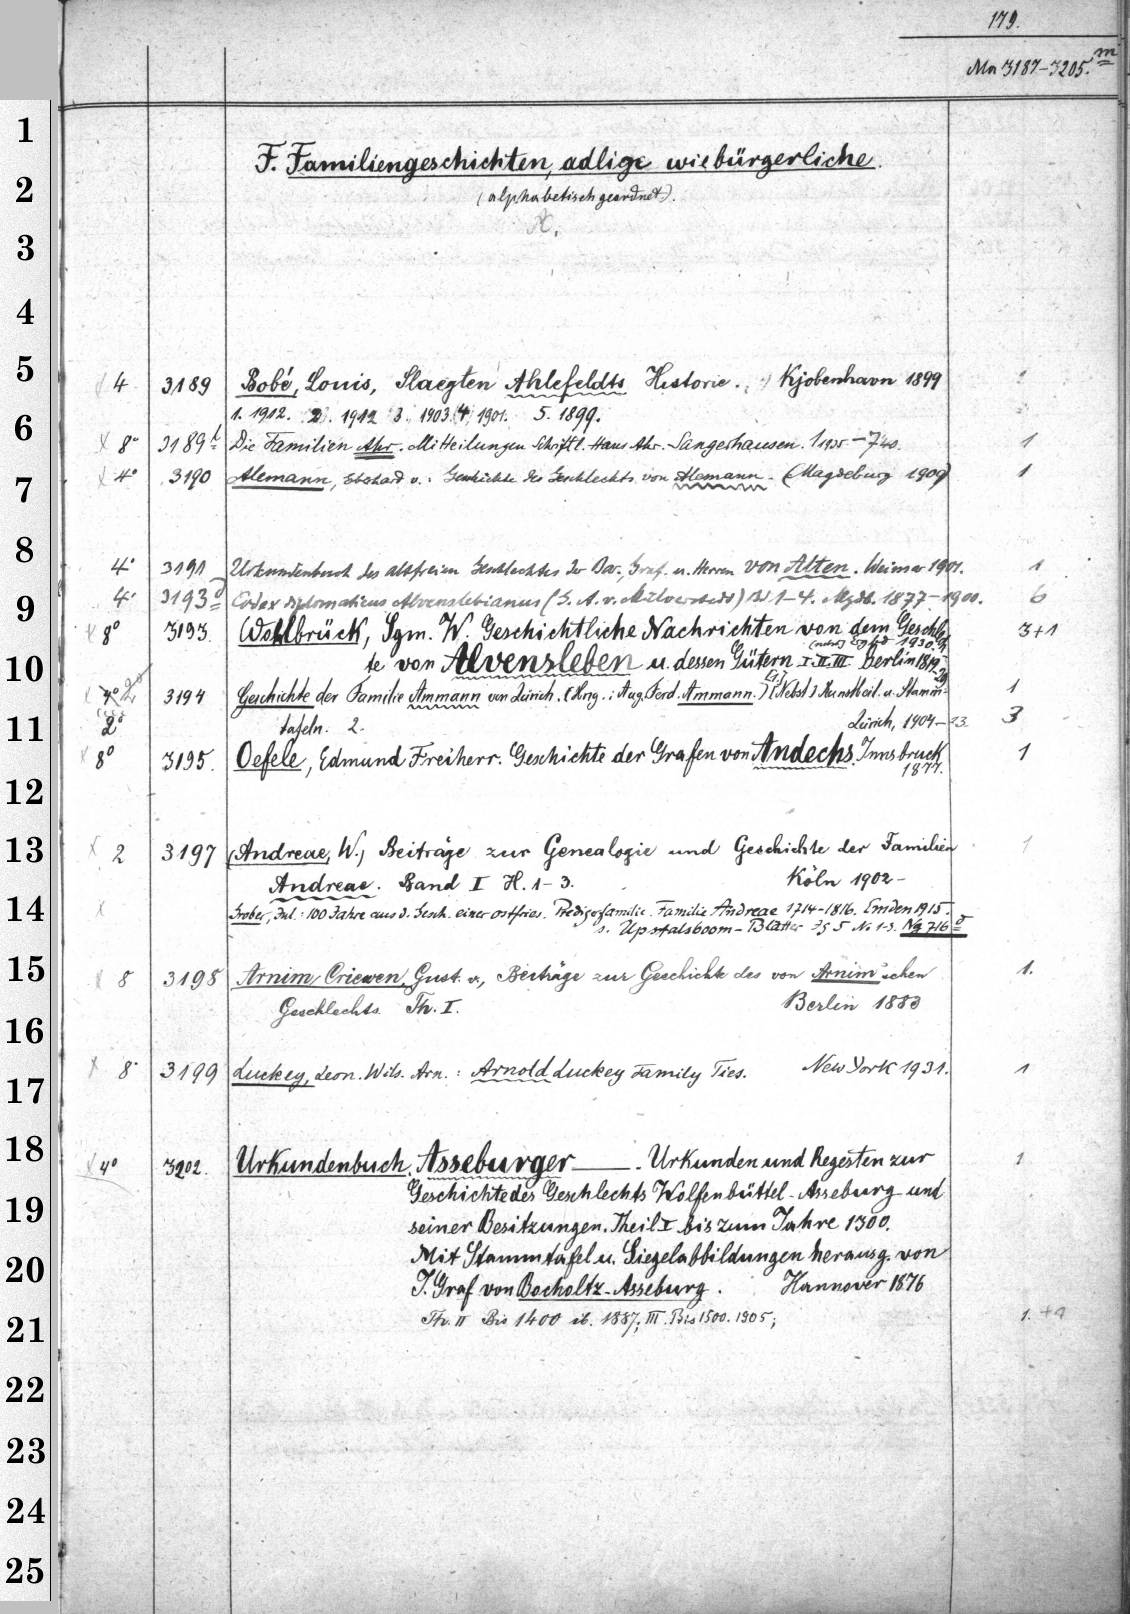 179.
Ma 3187-3205. m
F. Familiengeschichten, adlige wie bürgerliche.
(alphabetisch geordnet).
A.
4 3189 Bobé, Louis, Slaegten Ahlefeldts Historie. Kjobenhavn 1899
1. 1912. 2. 1912 3. 1903. (4) 1901. 5. 1899.
8° 3189 b Die Familien Ahr. Mitteilungen Schriftl. Hans Ahr. Sangerhausen. 1 1935-7 40. 1
4° 3190 Alemann, Eberhard v.: Geschichte des Geschlechts von Alemann. (Magdeburg 1909) 1
4° 3191 Urkundenbuch des altfreien Geschlechtes der Bar., Graf. u. Herren von Alten. Weimar 1901. 1
4° 3193 d Codex diplomaticus Alvenslebianus (G. A. v. Mülverstedt) Bd 1-4. Mgdb. 1877-1900. 6
8° 3193. Wohlbrück, Sgm. W. Geschichtliche Nachrichten von dem Geschlech 3+1
te von Alvensleben u. dessen Gütern I-II-III Berlin 1819-29
4° 3194 Geschichte der Familie Ammann von Zürich. (Hrsg.: Aug. Ferd. Ammann.) [Nebst] Kunstbeil. u. Stamm- 1
2° tafeln. 2. Zürich, 1904-13. 3
8° 3195. Oefele, Edmund Freiherr. Geschichte der Grafen von Andechs. Innsbruck 1
1877.
2 3197 (Andreae, W.) Beiträge zur Genealogie und Geschichte der Familien 1
Andreae. Band I H. 1-3. Köln 1902-
Grober, Jul.: 100 Jahre aus d. Gesch. einer ostfries. Predigerfamilie. Familie Andreae 1714-1816. Emden 1915.
s. Upstalsboom-Blätter Jg 5 No 1-3. Ng 716 d
8 3198 Arnim, Criewen, Gust. v., Beiträge zur Geschichte des von Arnim'schen 1.
Geschlechts. Th. I. Berlin 1883
8° 3199 Luckey, Leon. Wils. Arn.: Arnold Luckey Family Ties. New York 1931. 1
4° 3202. Urkundenbuch, Asseburger —. Urkunden und Regesten zur 1
Geschichte des Geschlechts Wolfenbüttel-Asseburg und
seiner Besitzungen. Theil I bis zum Jahre 1300.
Mit Stammtafel u. Siegelabbildungen herausg. von
J. Graf von Bocholtz-Asseburg. Hannover 1876
Th. II Bis 1400 ib. 1887; III. Bis 1500. 1905; 1.
1
2
3
4
5
6
7
8
9
10
11
12
13
14
15
16
17
18
19
20
21
22
23
24
25